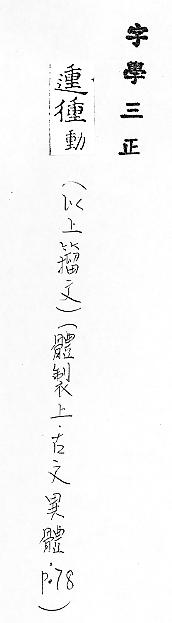 字學三正
動
(以上籀文)(體製上·古文異體 p.78)